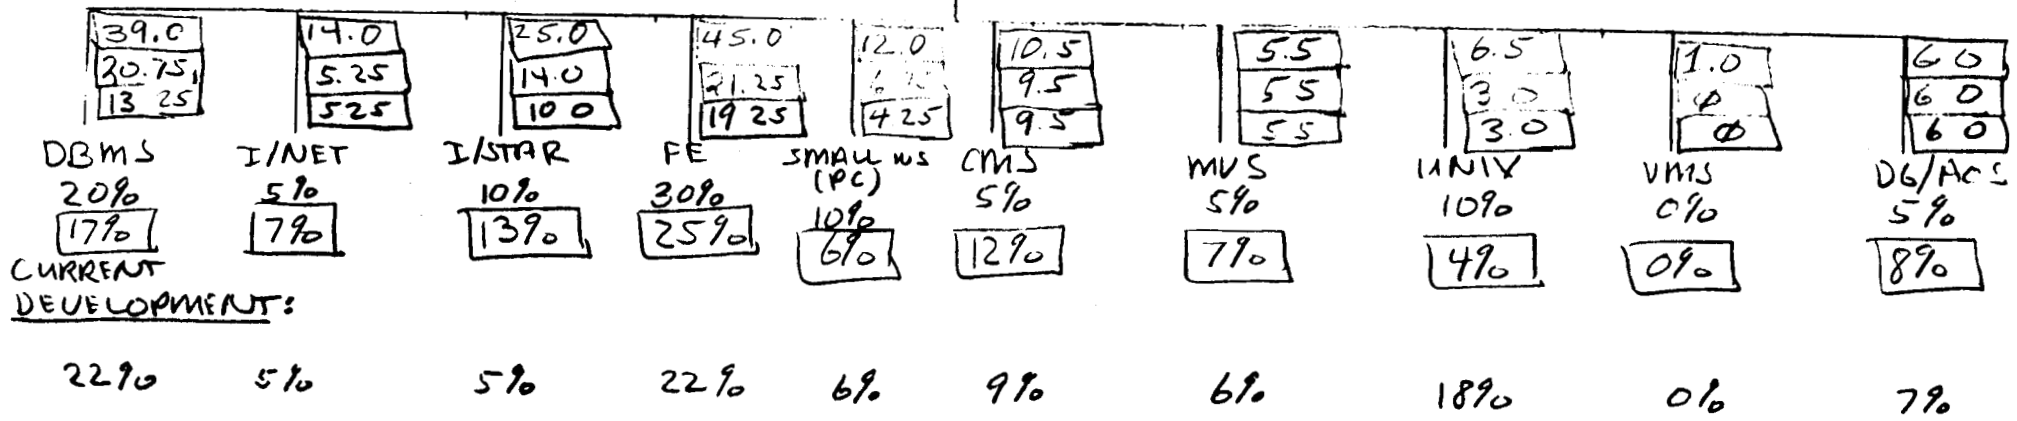 39.0 14.0 25.0 45.0 12.0 10.5 5.5 6.5 1.0 6 0
20.75 5.25 14.0 21.25 9.5 5 5 3 0 ϕ 6 0
13 25 5 25 10 0 19 25 4 25 9.5 5 5 3.0 ϕ 6 0
DBMS I/NET I/STAR FE SMALL INS (PC) CMS MVS UNIX VMS DG/AOS
20% 5% 10% 30% 10% 5% 5% 10% 0% 5%
17% 7% 13% 25% 6% 12% 7% 4% 0% 8%
CURRENT
DEVELOPMENT:
22% 5% 5% 22% 6% 9% 6% 18% 0% 7%